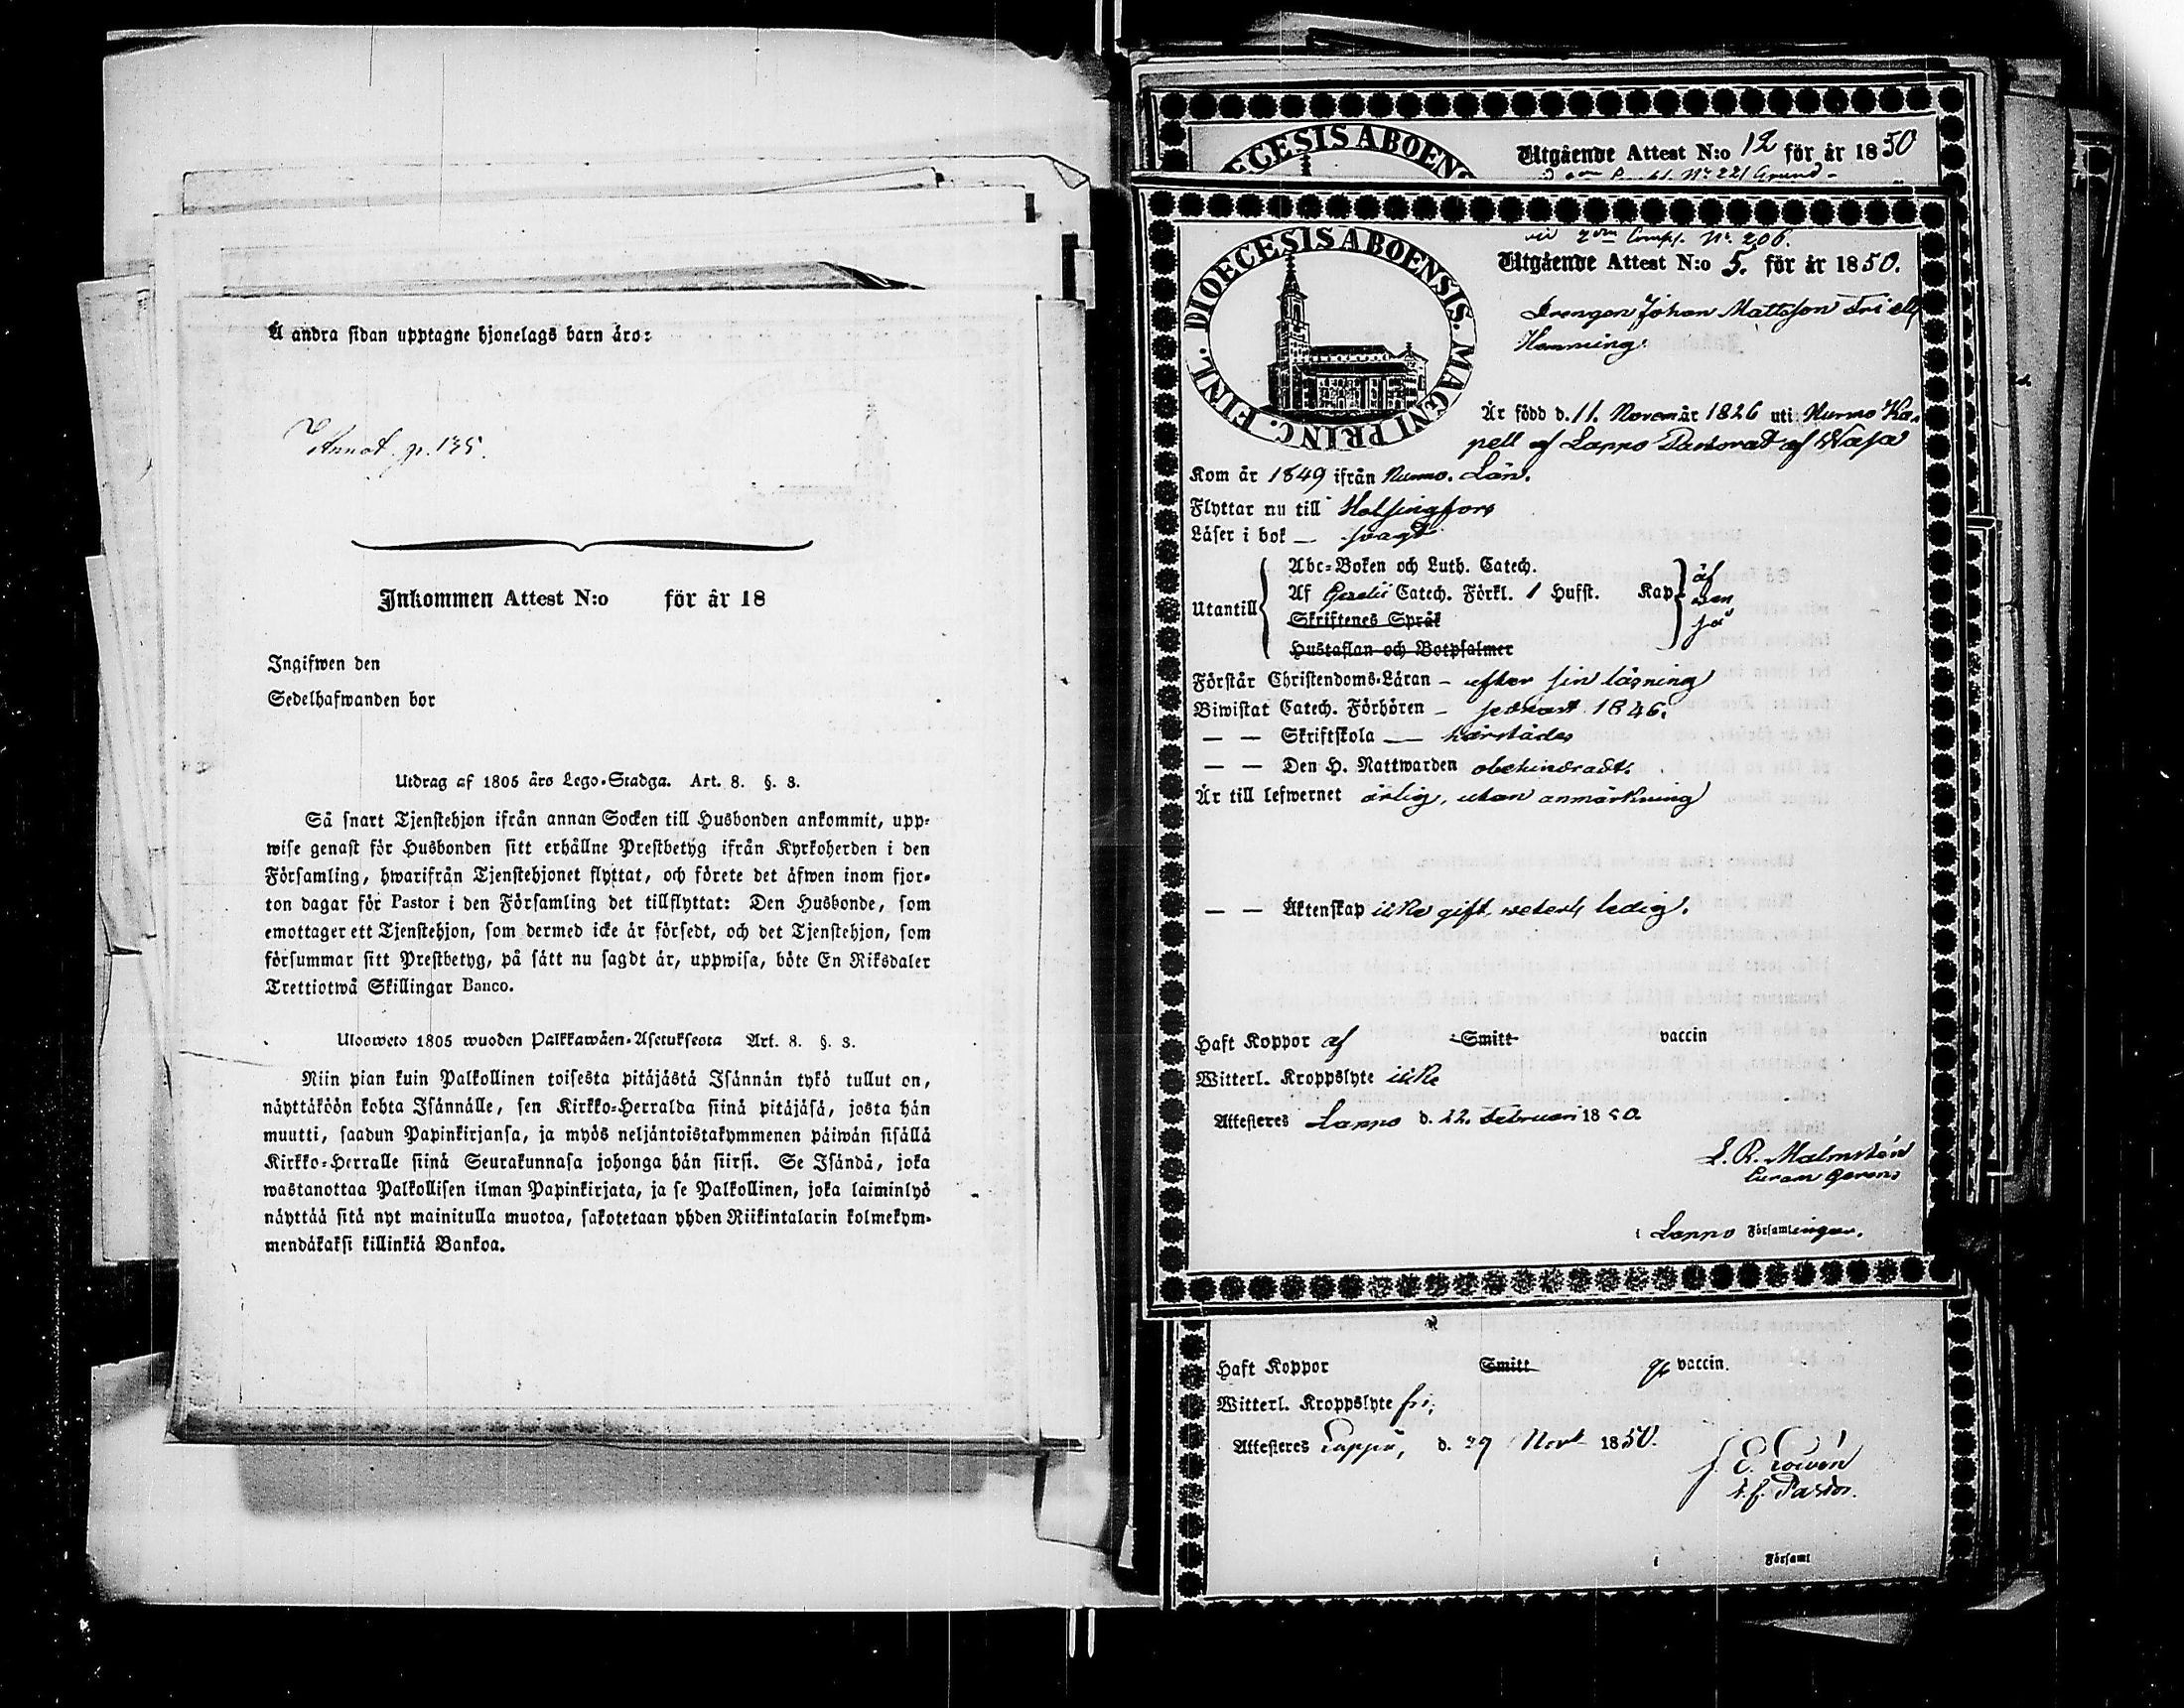 Å andra sidan upptagne hjonelags barn äro:
Annot. p. 135.
Inkommen Attest N:o för år 18
Ingifwen den
Sedelhafwanden bor
Utdrag af 1805 års Lego-Stadga. Art. 8. §. 3.
Så snart Tjenstehjon ifrån annan Socken till Husbonden ankommit, upp-
wise genast för Husbonden sitt erhållne Prestbetyg ifrån Kyrkoherden i den
Församling, hwarifrån Tjenstehjonet flyttat, och förete det äfwen inom fjor-
ton dagar för Pastor i den Församling det tillflyttat: Den Husbonde, som
emottager ett Tjenstehjon, som dermed icke är försedt, och det Tjenstehjon, som
försummar sitt Prestbetyg, på sätt nu sagdt är, uppwisa, böte En Riksdaler
Trettiotwå Skillingar Banco.
Uloosweto 1805 wuoden Palkkawäen-Asetuksesta Art. 8. §. 3.
Niin pian kuin Palkollinen toisesta pitäjästä Isännän tykö tullut on,
näyttäköön kohta Isännälle, sen Kirkko-Herralda siinä pitäjäsä, josta hän
muutti, saadun Papinkirjansa, ja myös neljäntoistakymmenen päiwän sisällä
Kirkko-Herralle siinä Seurakunnasa johonga hän siirsi. Se Isändä, joka
wastanottaa Palkollisen ilman Papinkirjata, ja se Palkollinen, joka laiminlyö
näyttää sitä nyt mainitulla muotoa, sakotetaan yhden Riikintalarin kolmekym-
mendäkaksi killinkiä Bankoa.
DIOECESIS ABOENSIS
Utgående Attest N:o 12 för år 1850
Compl. No 221 Grund-
DIOECESIS ABOENSIS. MAGNI PRINC. FINL.
vid 2dra Compl. No. 206.
Utgående Attest N:o 5. för år 1850.
Drengen Johan Mattsson
Hemming.
År född d. 11. Novem år 1826 uti Nurmo Ka-
pell af Lappo Pastorat af Wasa
Kom år 1849 ifrån Nurmo. Län.
Flyttar nu till Helsingfors
Läser i bok — svagt
Utantill
Abc-Boken och Luth. Catech.
Af Gezelii Catech. Förkl. 1 Hufst. Kap
Skriftenes Språk
Hustaflan och Botpsalmer
äf
wen
så
Förstår Christendoms-Läran – efter sin läsning
Biwistat Catech. Förhören – sednast 1846.
— — Skriftskola — härstädes
— — Den H. Nattwarden obehindradt.
Är till lefwernet ärlig, utan anmärkning
— — Äktenskap icke gift, veterl. ledig.
Haft Koppor af Smitt vaccin
Witterl. Kroppslyte icke
Attesteres Lappo d. 22. Februari 1850.
L. R. Malmstén
Curam Gerens
i Lappo Församlingen.
Haft Koppor Smitt af vaccin.
Witterl. Kroppslyte fri,
Attesteres Lappo, d. 29 Novb 1850.
J. E.
t.f. Pastor.
i Församl